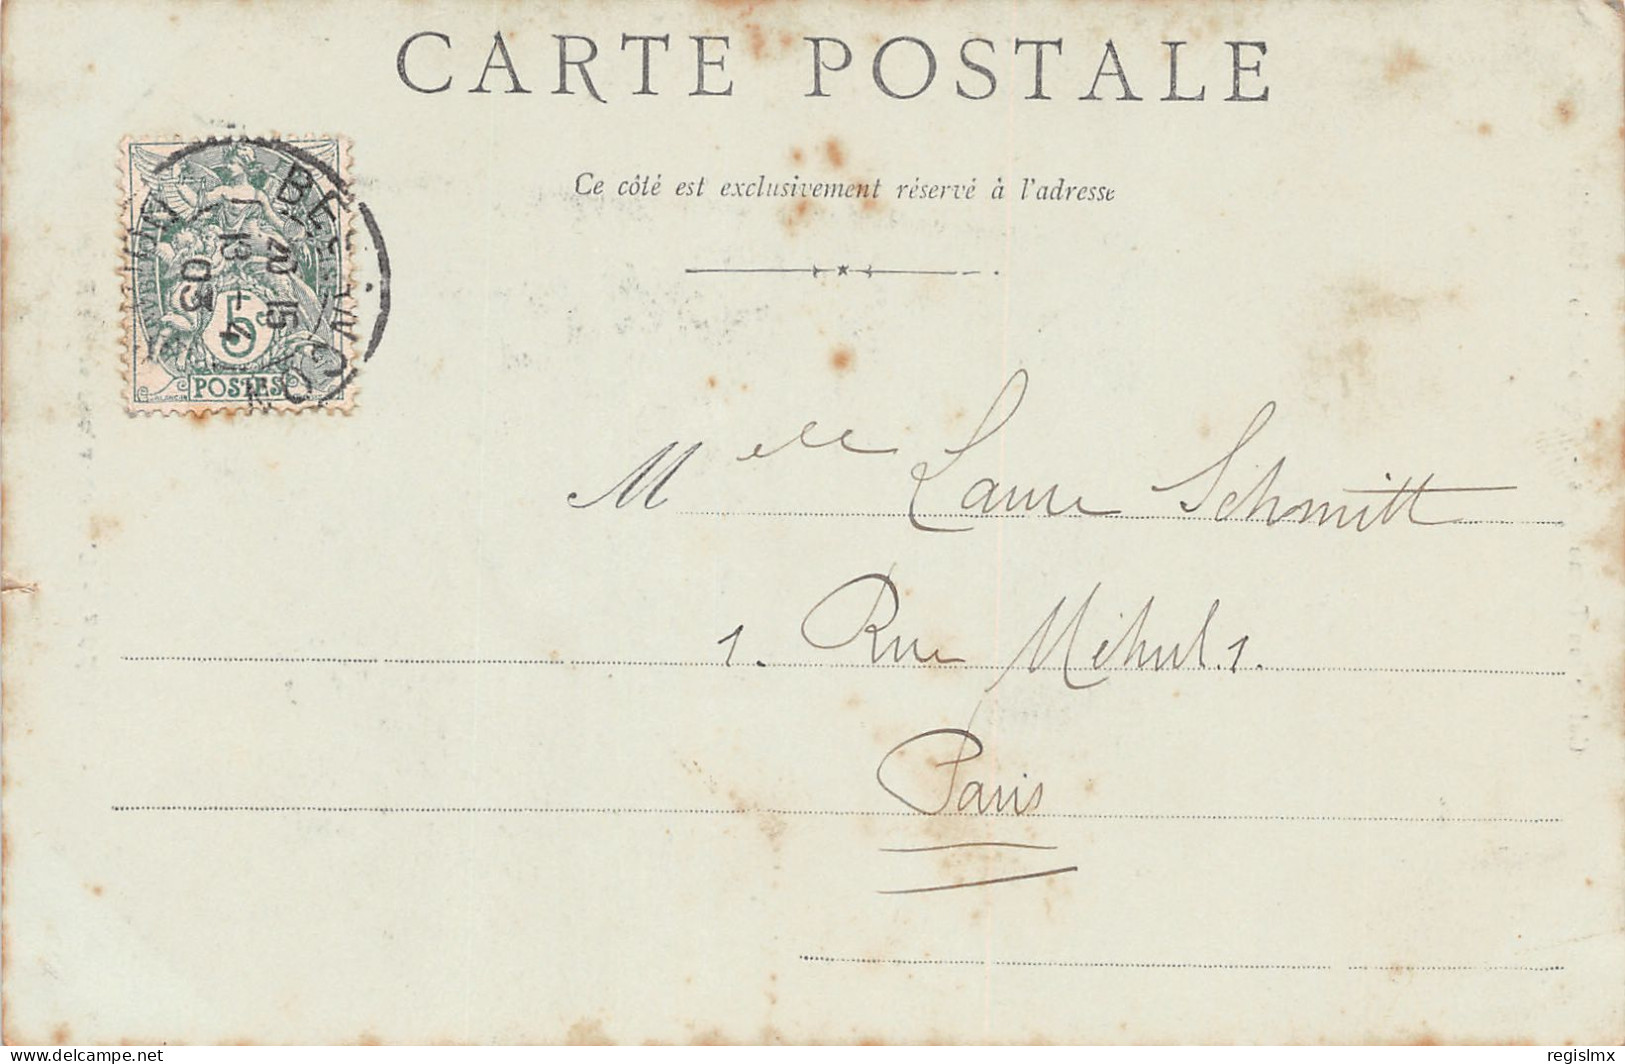 CARTE POSTALE
Ce côté est exclusivement réservé à l'adresse
20 15
13 - 4
03
5c
POSTES
Melle Laure Schmitt
1. Rue Méhul. 1.
Paris
www.delcampe.net
regislmx